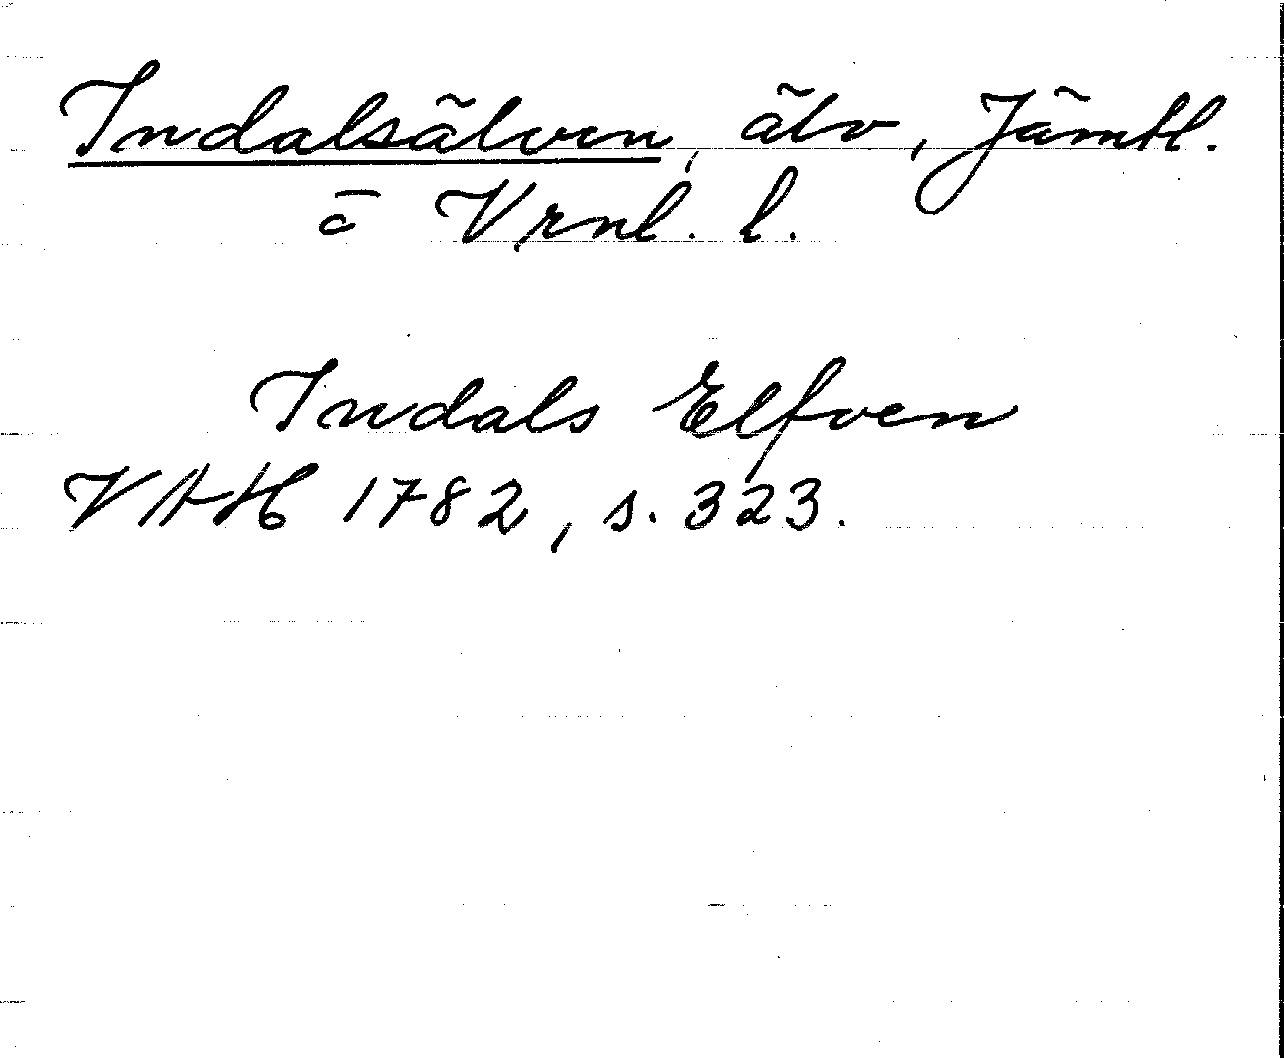 Indalsälven, älv, Jämtl.
o Vrnl. l.
Indals Elfven
VAH 1782, s. 323.